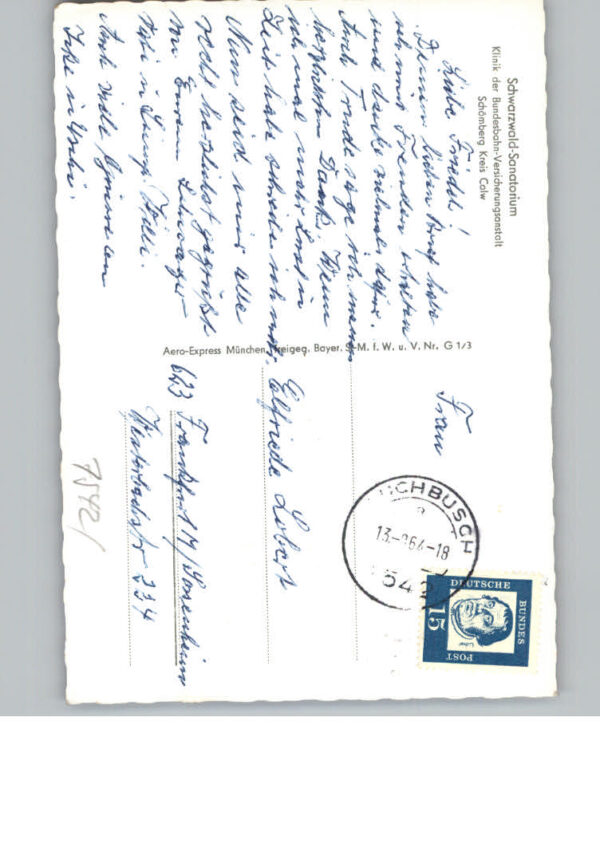 Schwarzwald-Sanatorium
Klinik der Bundesbahn-Versicherungsanstalt
Schömberg Kreis Calw
Liebe Friedel!
Deinen lieben Brief habe
ich mit Freuden erhalten
und danke vielmals dafür.
Auch Trude sage ich meinen
herzlichsten Dank. Wenn
ich mal mehr Lust u
Zeit habe schreibe ich mehr.
Nun seid mir alle
recht herzlichst gegrüßt
von Eurem
Willi.
Auch viele Grüsse an
Aero-Express München, Freigeg. Bayer. S. M. f. W. u. V. Nr. G 1/3
Frau
Elfriede Lobert
623 Frankfurt M/Sossenheim
334
7542/
UCHBUSCH
13.-264-18
542
DEUTSCHE
BUNDES
POST
15